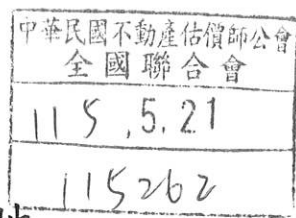 中華民國不動產估價師公會
全國聯合會
115.5.21
115262